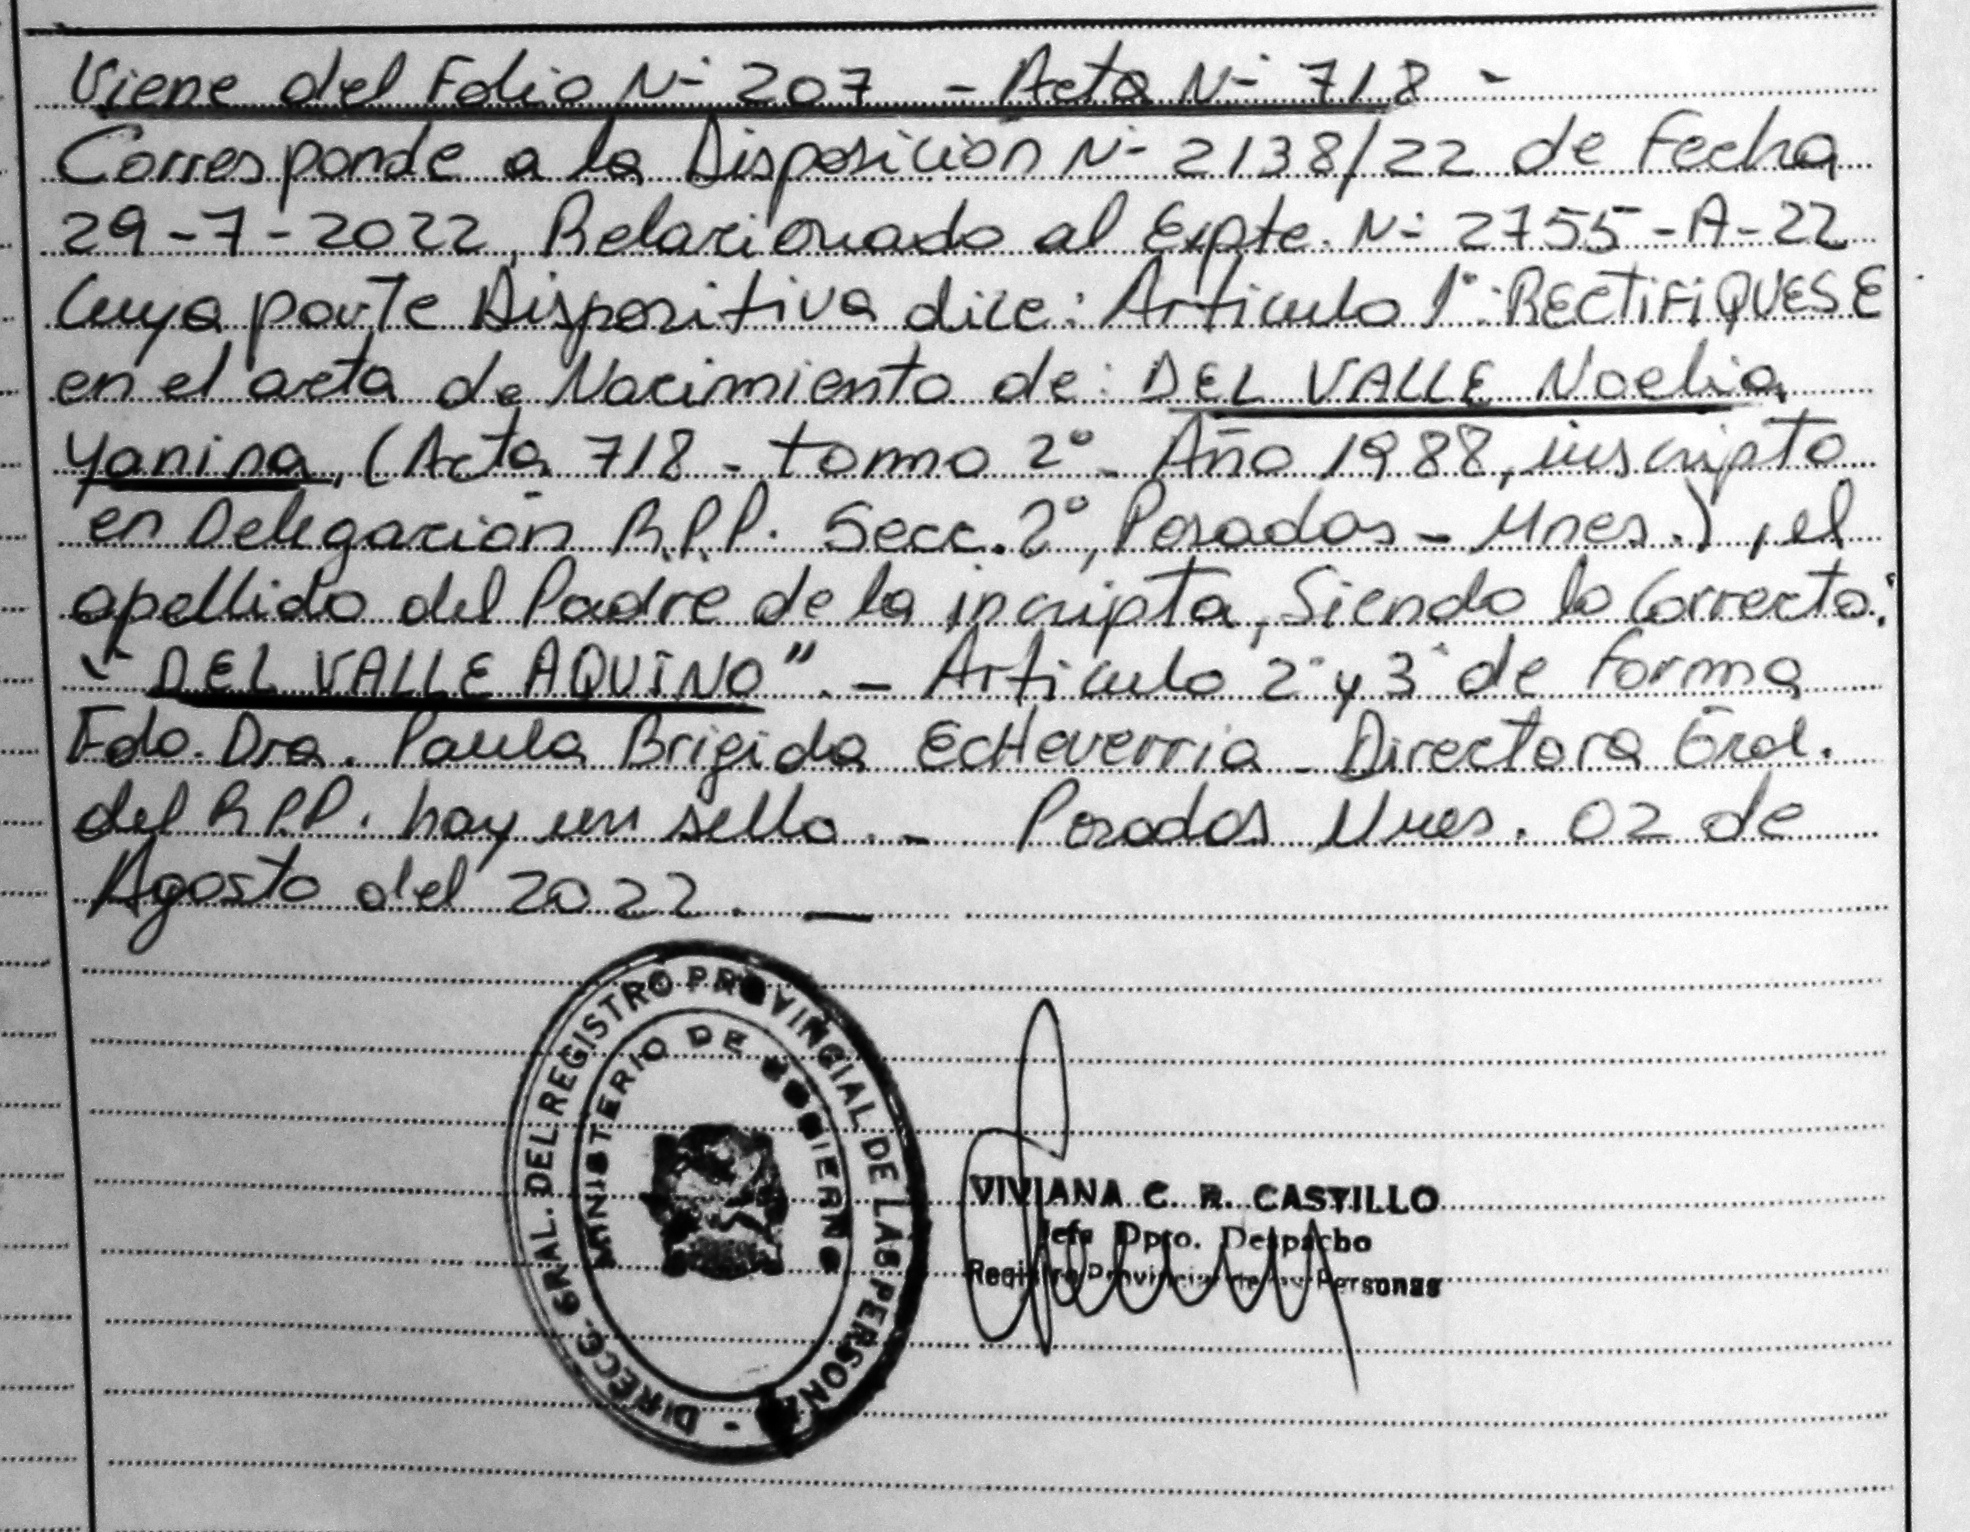 Viene del Folio N- 207 - Acta N- 718 -
Corresponde a la Disposición N- 2138/22 de Fecha
29-7-2022, Relacionado al Expte. N- 2755-A-22
Cuya parte Dispositiva dice: Articulo 1°: RECTIFIQUESE
en el acta de Nacimiento de: DEL VALLE Noelia
Yanina, (Acta 718 - tomo 2° - Año 1988, inscripto
en Delegación R.P.P. Secc. 2°, Posadas - Mnes.), el
apellido del Padre de la incripta, Siendo lo Correcto:
"DEL VALLE AQUINO". - Articulo 2° y 3° de Forma
Fdo. Dra. Paula Brigida EcHeverria - Directora Gral.
del R.P.P. hay un sello. - Posadas Mnes. 02 de
Agosto del 2022. —
DIRECC. GRAL. DEL REGISTRO PROVINCIAL DE LAS PERSONAS -
MINISTERIO DE GOBIERNO
VIVIANA C. R. CASTILLO
Jefa Dpto. Despacho
Registro Provincial de las Personas